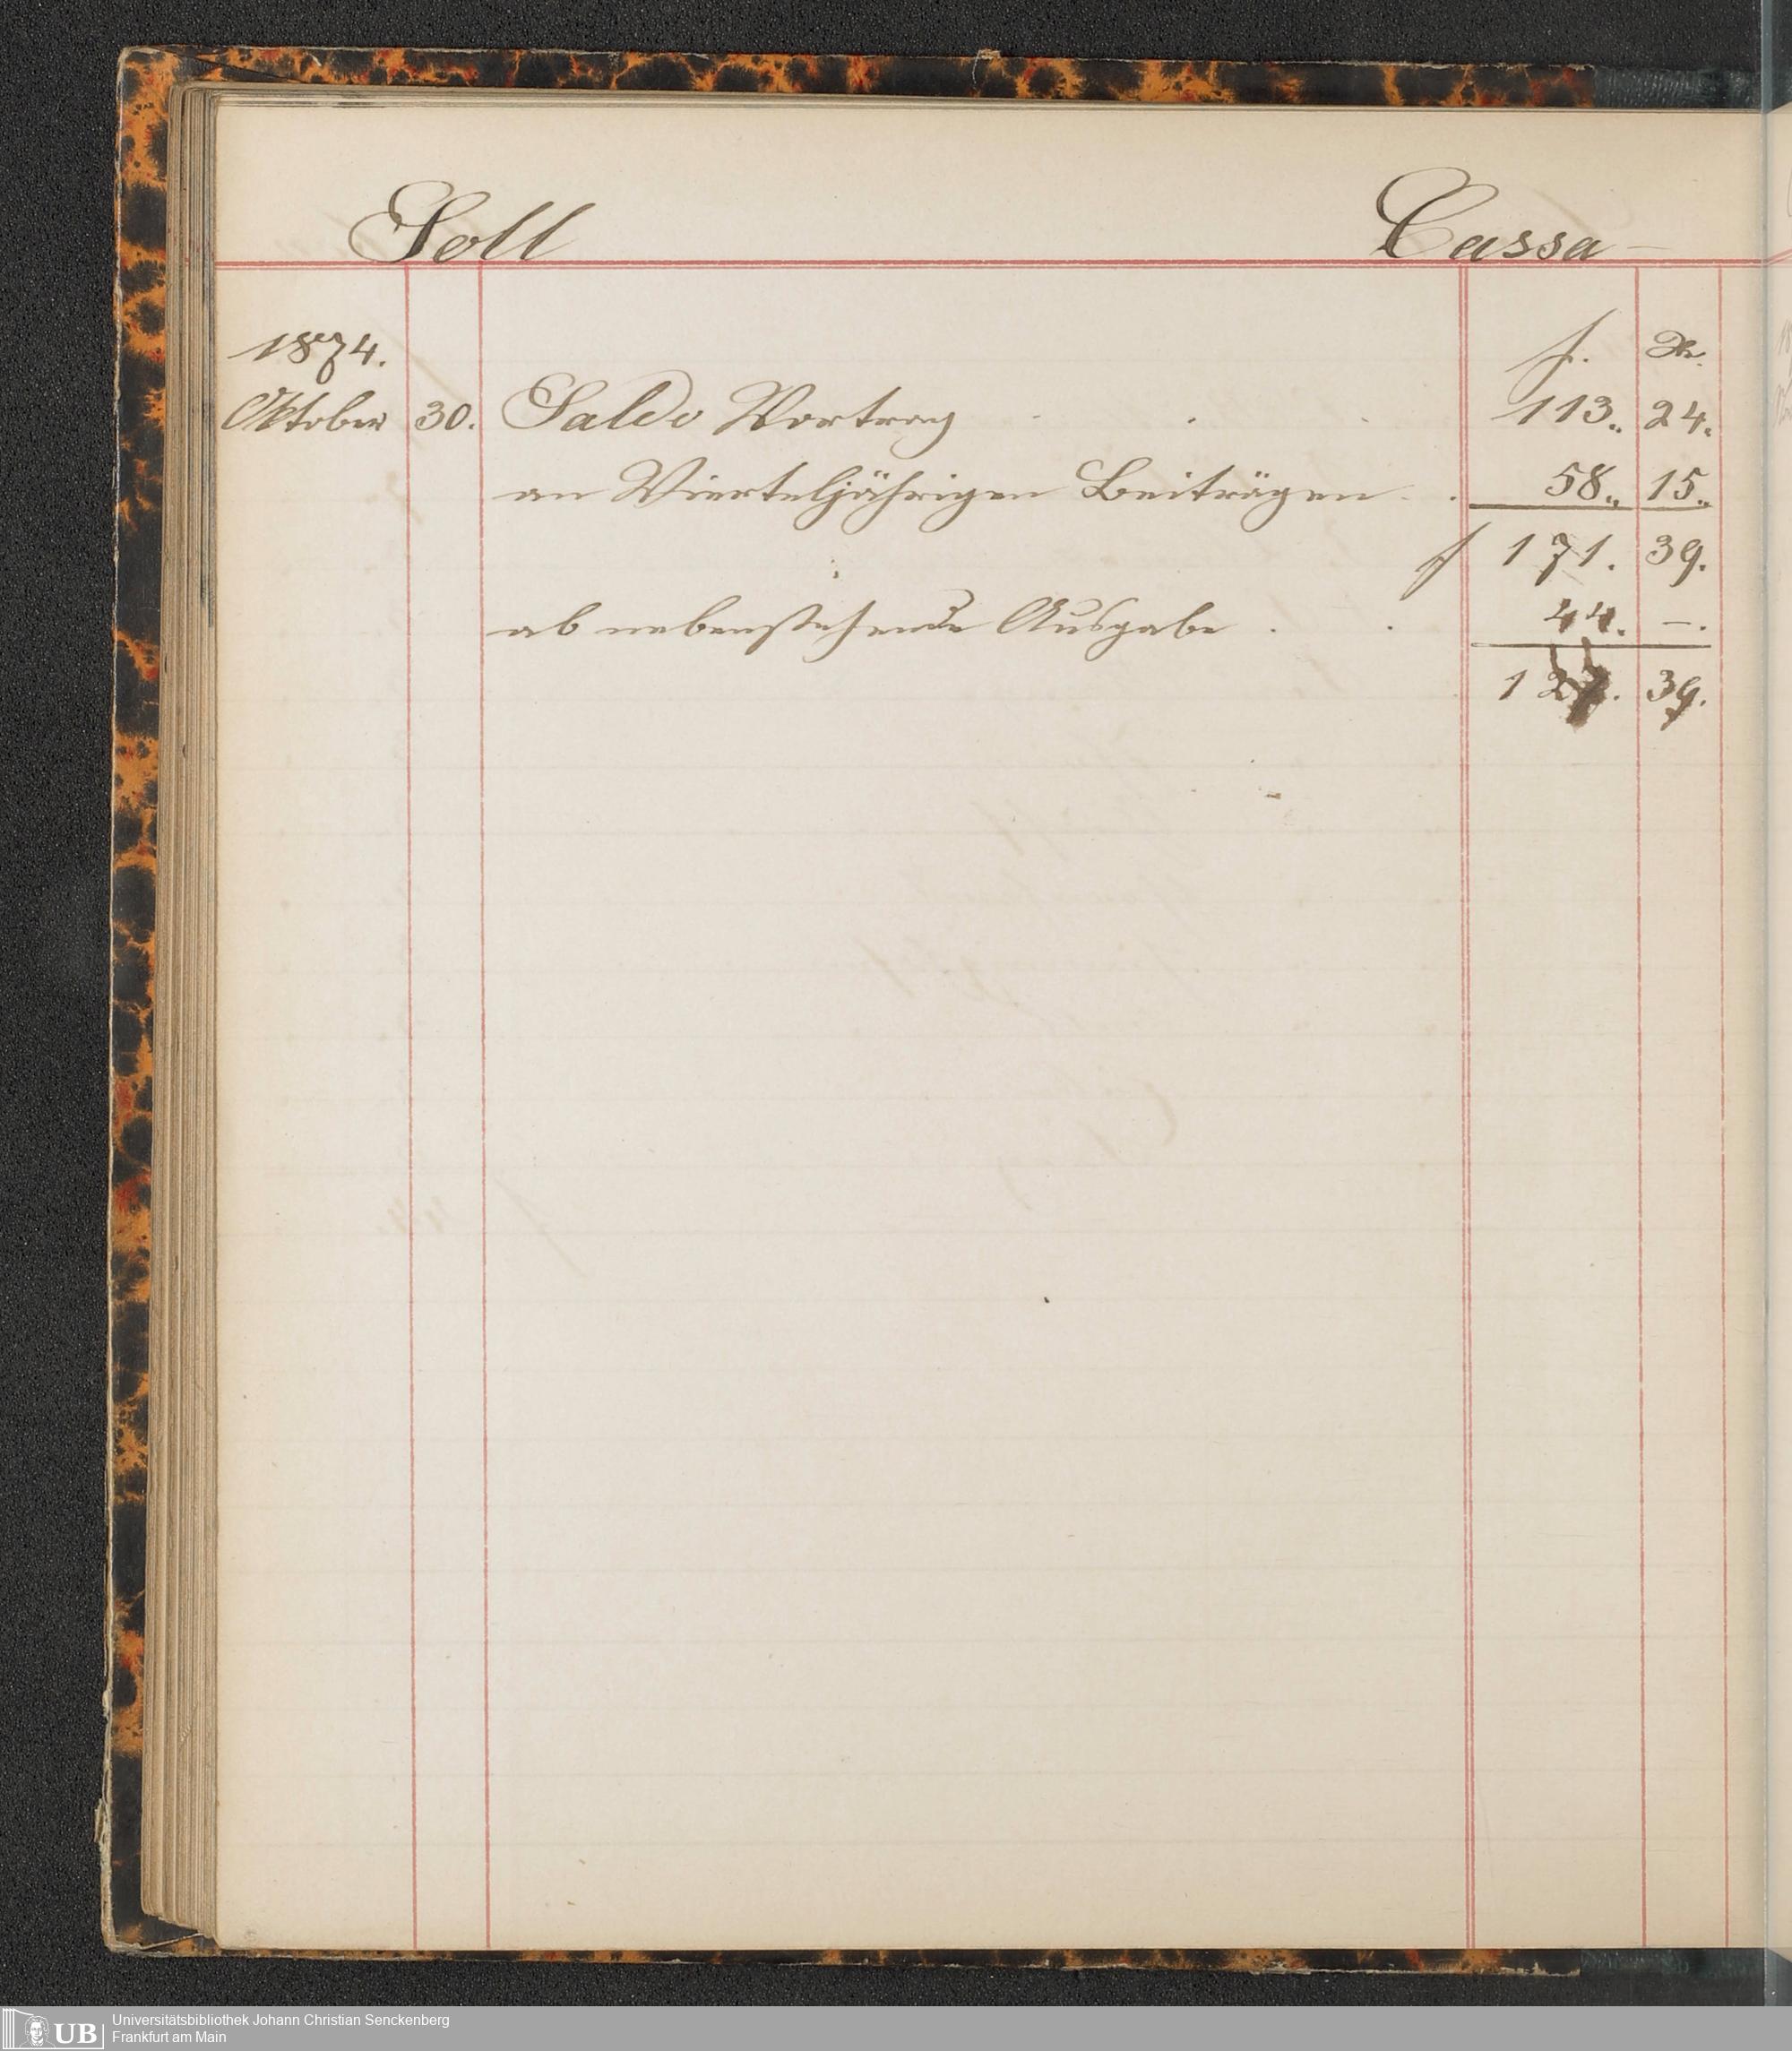 Soll Cassa
1874. f. Kr.
Oktober 30. Saldo Vortrag . . . 113.. 24.
an Vierteljährigen Beiträgen . . 58.. 15..
f 171. 39.
ab nebenstehende Ausgabe . . 44. –.
127. 39.
UB Universitätsbibliothek Johann Christian Senckenberg
Frankfurt am Main